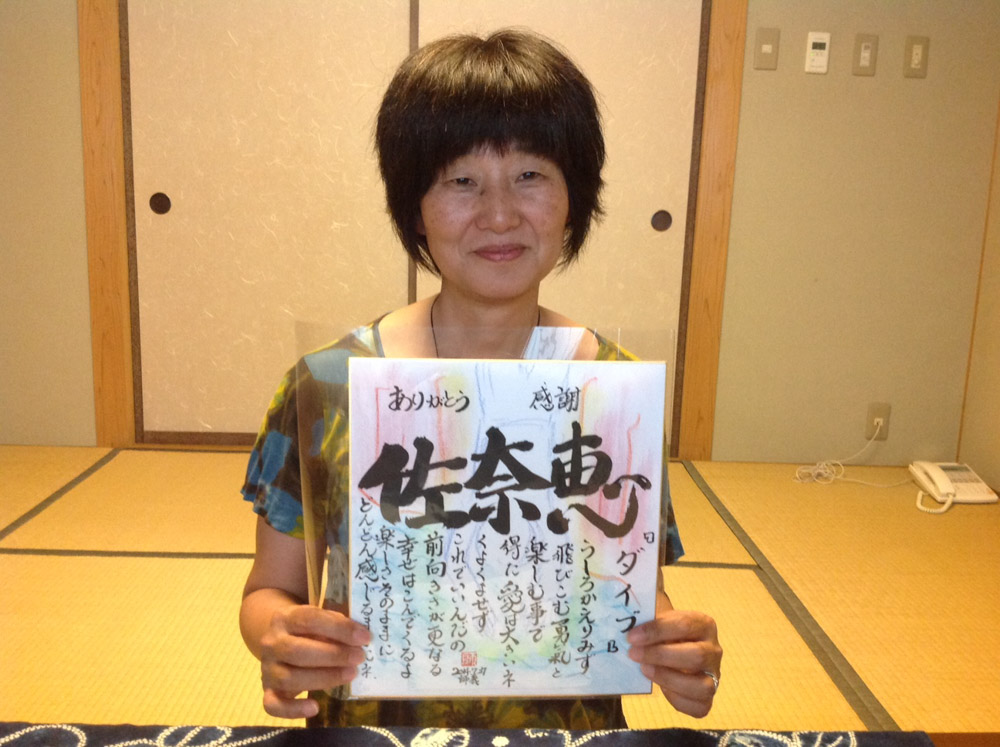 ありがとう 感謝
佐奈恵
『ダイブ』
うしろかえりみず
飛びこむ勇気と
楽しむ事で
得に愛は大きいネ
くよくよせず
これでいいんだの
前向きさが更なる
幸せはこんでくるよ
楽しさそのままに
どんどん感じるま